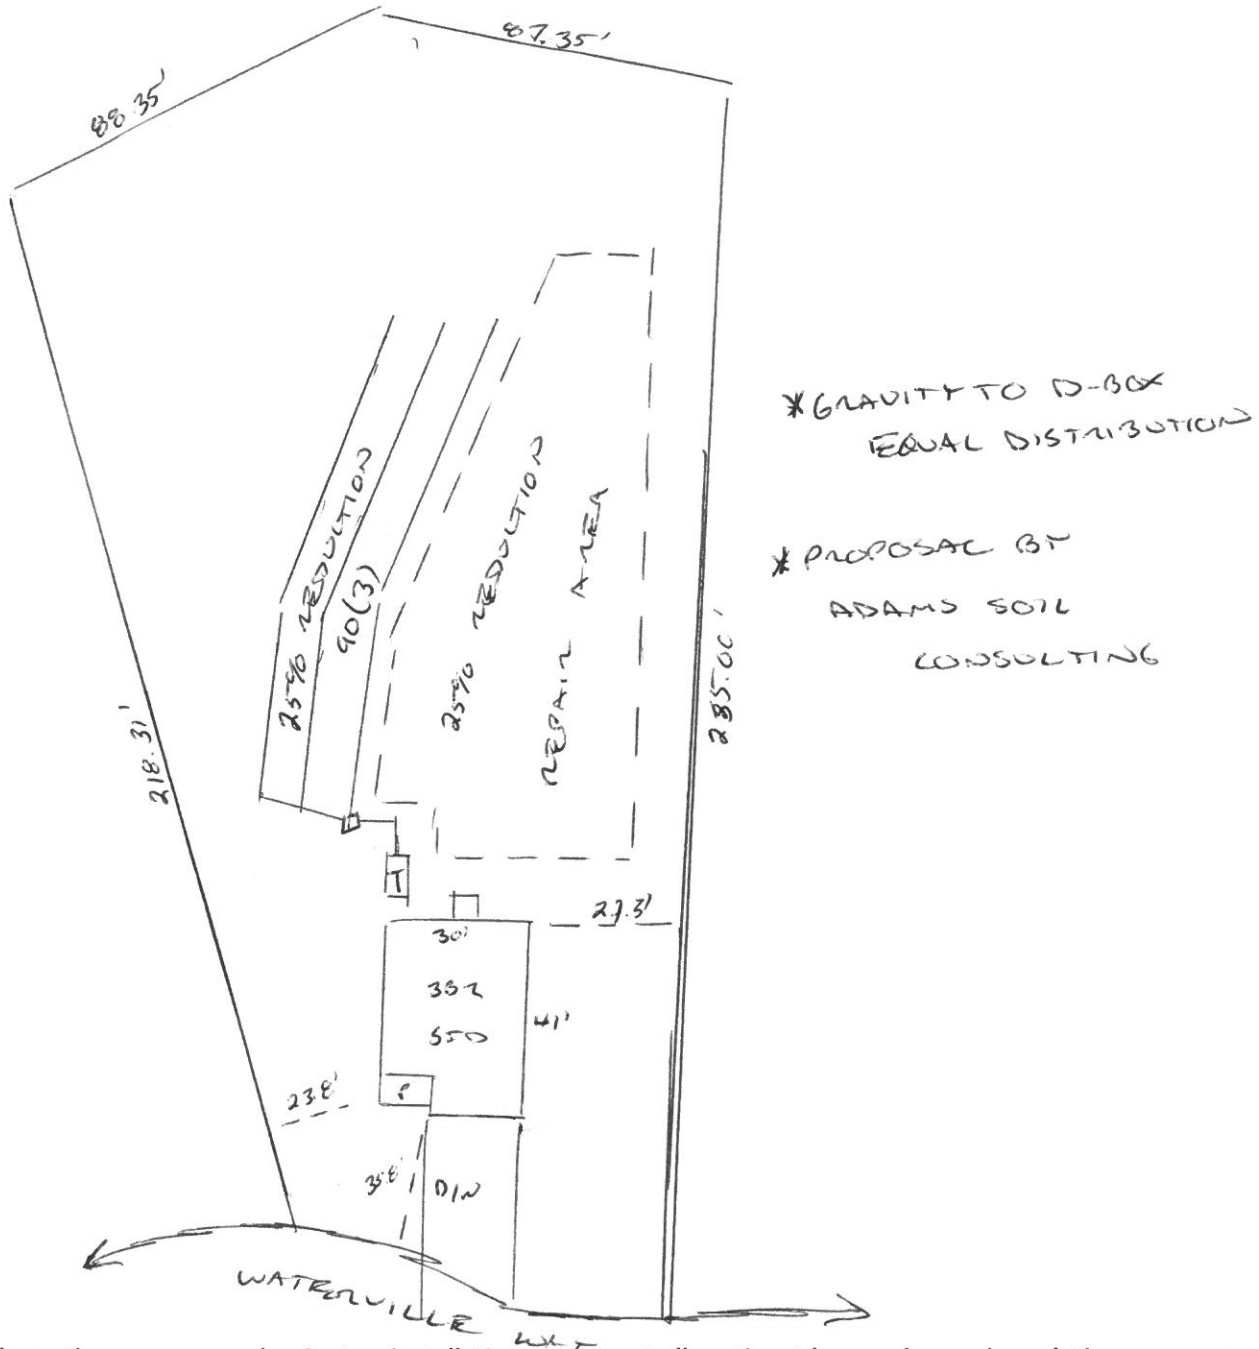 87.35'
88.35'
* GRAVITY TO D-BOX
EQUAL DISTRIBUTION
* PROPOSAL BY
ADAMS SOIL
CONSULTING
25% REDUCTION
90(3)
25% REDUCTION
REPAIR AREA
218.31'
285.00'
T
30'
3BR
SFD
41'
P
23.8'
35.8'
D/W
WATERVILLE